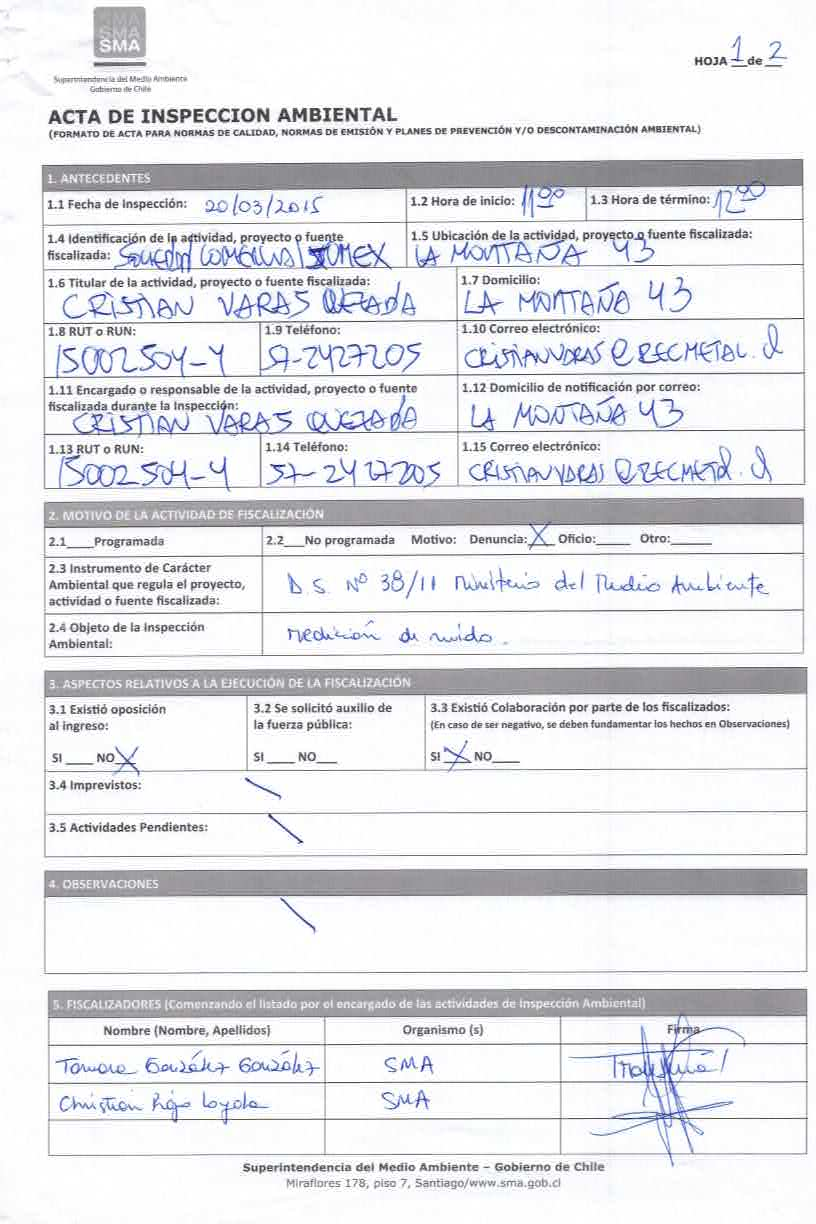 SMA
SMA
SMA
Superintendencia del Medio Ambiente
Gobierno de Chile
HOJA 1 de 2
ACTA DE INSPECCION AMBIENTAL
(FORMATO DE ACTA PARA NORMAS DE CALIDAD, NORMAS DE EMISIÓN Y PLANES DE PREVENCIÓN Y/O DESCONTAMINACIÓN AMBIENTAL)
1. ANTECEDENTES
1.1 Fecha de Inspección: 20/03/2015
1.2 Hora de inicio: 11:00
1.3 Hora de término: 12:00
1.4 Identificación de la actividad, proyecto o fuente
fiscalizada:
1.5 Ubicación de la actividad, proyecto o fuente fiscalizada:
LA MONTAÑA 43
1.6 Titular de la actividad, proyecto o fuente fiscalizada:
CRISTIAN VARAS QUEZADA
1.7 Domicilio:
LA MONTAÑA 43
1.8 RUT o RUN:
15002504-4
1.9 Teléfono:
57-2427205
1.10 Correo electrónico:
CRISTIANVARAS@RECMETAL.cl
1.11 Encargado o responsable de la actividad, proyecto o fuente
fiscalizada durante la Inspección:
CRISTIAN VARAS QUEZADA
1.12 Domicilio de notificación por correo:
LA MONTAÑA 43
1.13 RUT o RUN:
15002504-4
1.14 Teléfono:
57-2427205
1.15 Correo electrónico:
CRISTIANVARAS@RECMETAL.cl
2. MOTIVO DE LA ACTIVIDAD DE FISCALIZACIÓN
2.1____Programada
2.2___No programada Motivo: Denuncia: X Oficio:_____ Otro:______
2.3 Instrumento de Carácter
Ambiental que regula el proyecto,
actividad o fuente fiscalizada:
D.S. Nº 38/11 Ministerio del Medio Ambiente
2.4 Objeto de la Inspección
Ambiental:
Medición de ruido.
3. ASPECTOS RELATIVOS A LA EJECUCIÓN DE LA FISCALIZACIÓN
3.1 Existió oposición
al ingreso:
SI ____ NO X
3.2 Se solicitó auxilio de
la fuerza pública:
SI ____ NO___
3.3 Existió Colaboración por parte de los fiscalizados:
(En caso de ser negativo, se deben fundamentar los hechos en Observaciones)
SI X NO____
3.4 Imprevistos:
3.5 Actividades Pendientes:
4. OBSERVACIONES
5. FISCALIZADORES (Comenzando el listado por el encargado de las actividades de Inspección Ambiental)
Nombre (Nombre, Apellidos)
Organismo (s)
Firma
Tamara González González
SMA
Christian Rojo Loyola
SMA
Superintendencia del Medio Ambiente – Gobierno de Chile
Miraflores 178, piso 7, Santiago/www.sma.gob.cl